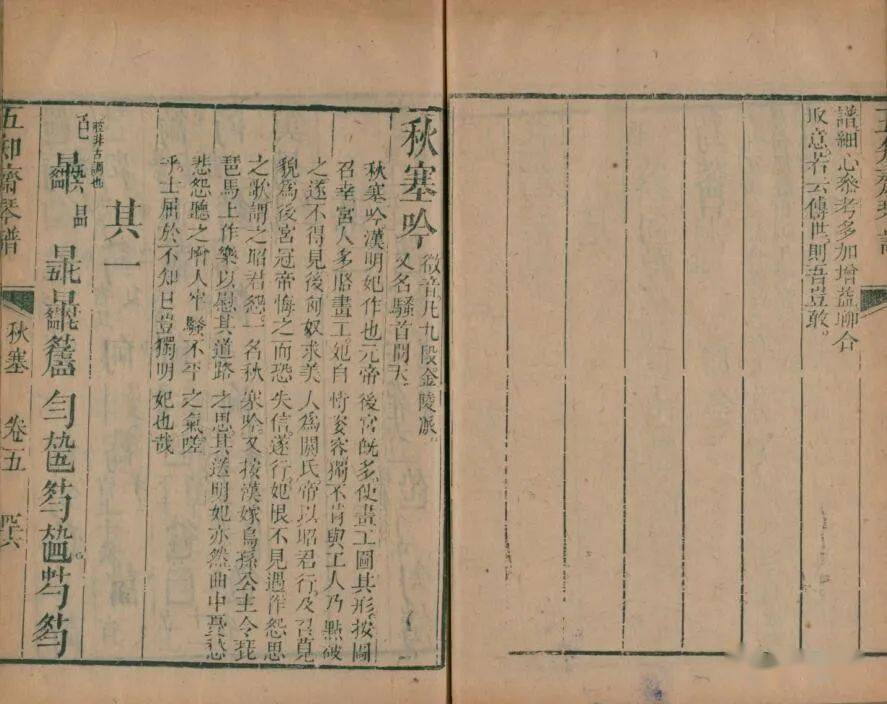 譜細心叅考多加增益聊合
取意若云傳世則吾豈敢。
秋塞吟
徵音凡九段金陵派。
又名騷首問天
秋塞吟漢明妃作也元帝後宮旣多使畫工圖其形按圖
召幸宮人多賂畫工妃自恃姿容獨不肯與工人乃點破
之遂不得見後匈奴求美人爲閼氏帝以昭君行及召見
貌爲後宮冠帝悔之而恐失信遂行妃恨不見遇作怨思
之歌謂之昭君怨一名秋塞吟又按漢嫁烏孫公主令琵
琶馬上作樂以慰其道路之思其送明妃亦然曲中憂愁
悲怨聽之增人牢騷不平之氣嗟
乎士屈於不知已豈獨明妃也哉
其一
非古調也
五知齋琴譜 秋塞 卷五